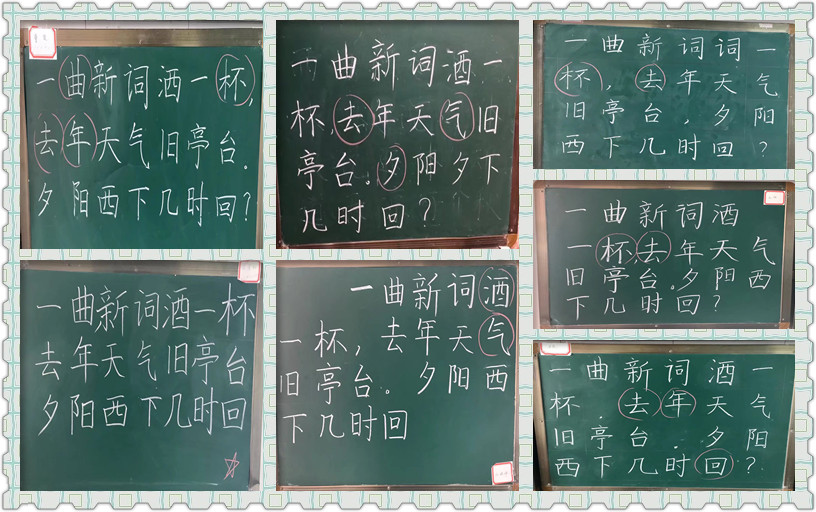 一曲新词酒一杯,
去年天气旧亭台.
夕阳西下几时回?
一曲新词酒一
杯,去年天气旧
亭台。夕阳夕下
几时回?
一曲新词词一
杯,去年天气
旧亭台,夕阳
西下几时回?
一曲新词酒
一杯,去年天气
旧亭台.夕阳西
下几时回?
一曲新词酒一杯
去年天气旧亭台
夕阳西下几时回
一曲新词酒
一杯,去年天气
旧亭台。夕阳西
下几时回
一曲新词酒一
杯.去年天气
旧亭台.夕阳
西下几时回?